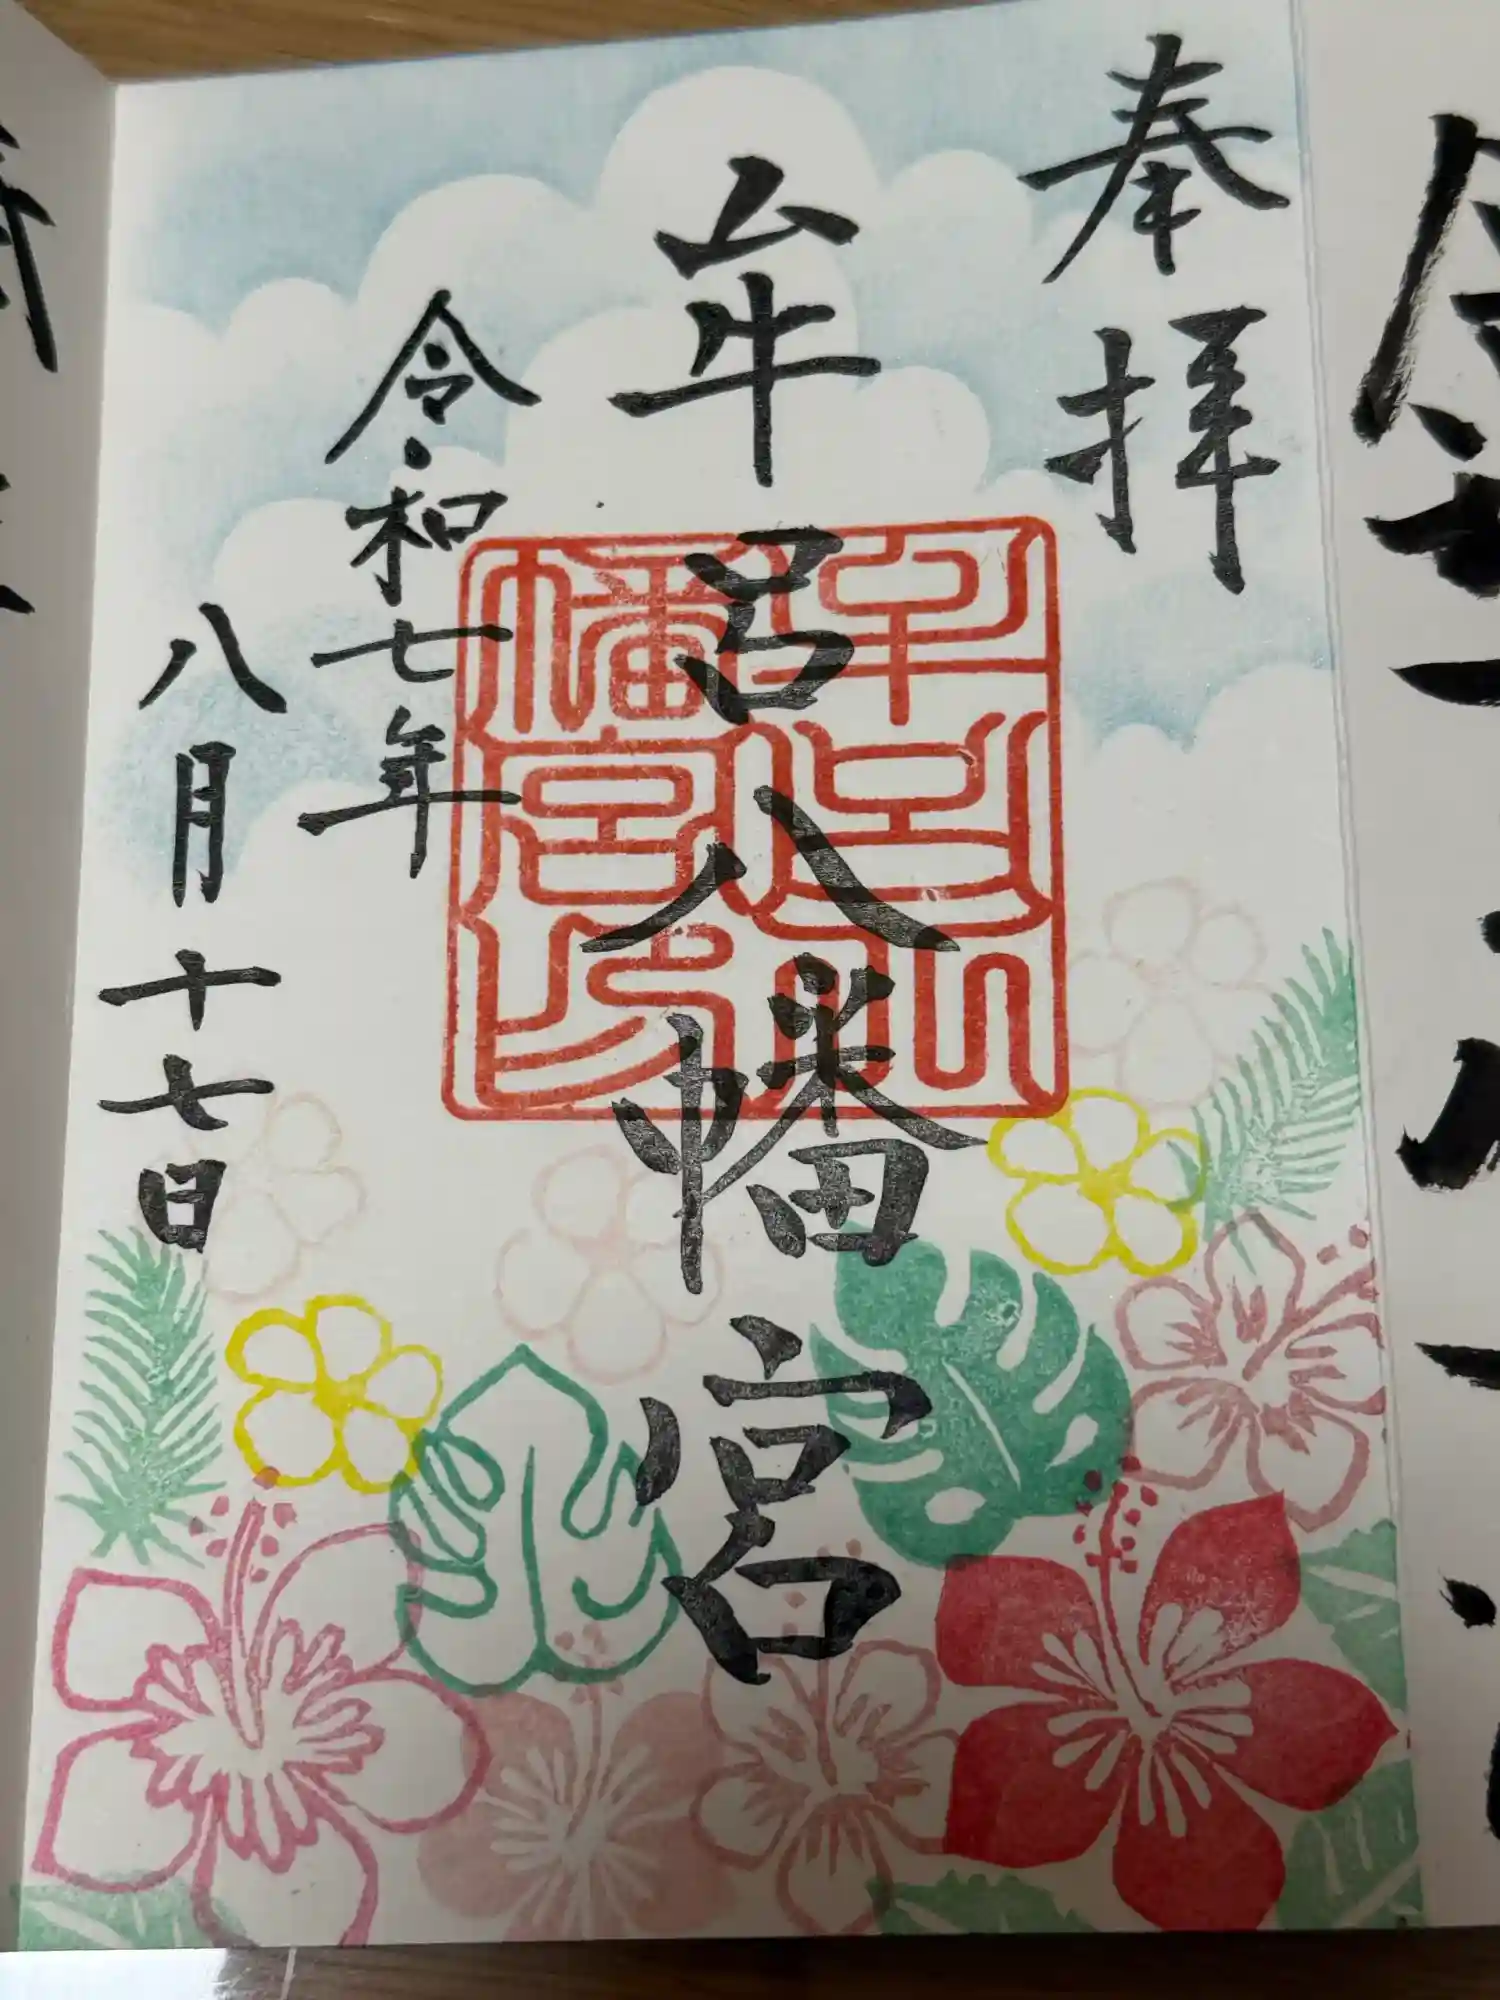 奉拝
牟呂八幡宮
牟呂八幡宮印
令和七年
八月十七日